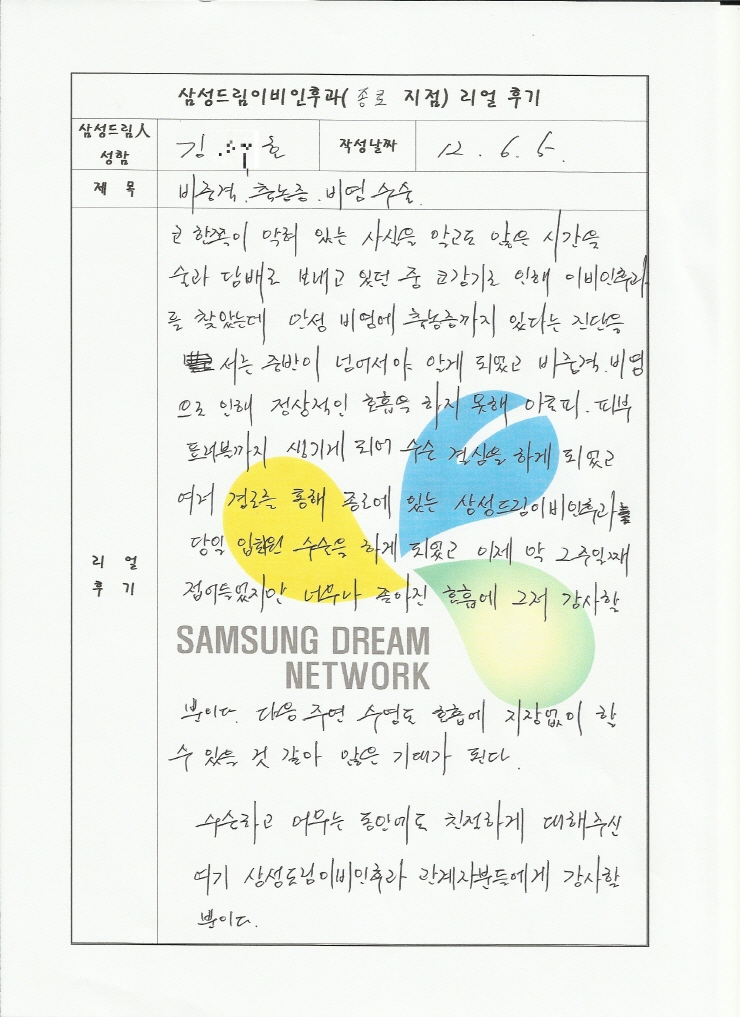 삼성드림이비인후과( 종로 지점) 리얼 후기
삼성드림人
성함
김 호
작성날짜
12. 6. 5.
제 목
비중격. 축농증. 비염 수술.
코 한쪽이 막혀 있는 사실을 알고도 많은 시간을
술과 담배로 보내고 있던 중 코감기로 인해 이비인후과
를 찾았는데 만성 비염에 축농증까지 있다는 진단을
서른 중반이 넘어서야 알게 되었고 비중격. 비염
으로 인해 정상적인 호흡을 하지 못해 아토피. 피부
트러블까지 생기게 되어 수술 결심을 하게 되었고
여러 경로를 통해 종로에 있는 삼성드림이비인후과를
당일 입퇴원 수술을 하게 되었고 이제 막 2주일째
접어들었지만 너무나 좋아진 호흡에 그저 감사할
리 얼
후 기
SAMSUNG DREAM
NETWORK
뿐이다. 다음 주엔 수영도 호흡에 지장없이 할
수 있을 것 같아 많은 기대가 된다.
수술하고 머무는 동안에도 친절하게 대해주신
여기 삼성드림이비인후과 관계자분들에게 감사할
뿐이다.